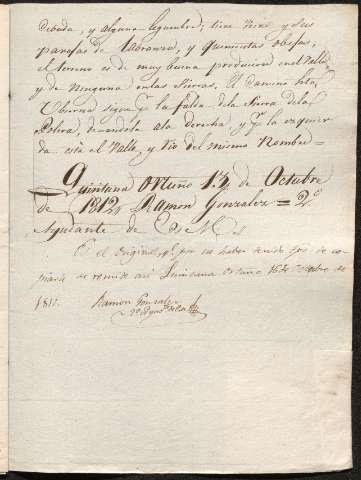 cebada, y alguna legumbre; tiene treinta y seis
parejas de labranza, y quinientas obejas,
el terreno es de muy buena produccion en el Valle
y de ninguna en las Sierras. El Camino hta
sigue pr la falda de la Sierra de la
dejandola ala derecha y pr la izquierda
da està el Valle, y rio del mismo Nombre =
Quintana Ortuño 13 de Octubre
de 1812 = Ramon Gonzalez = 2º
Ayudante de E. M.
Es el Original qe por no haber tenido tpo de copiarle
se remite asi Quintana Ortuño de Octubre de
1812.
Ramon Gonzalez
2º Ayudte de E. M.